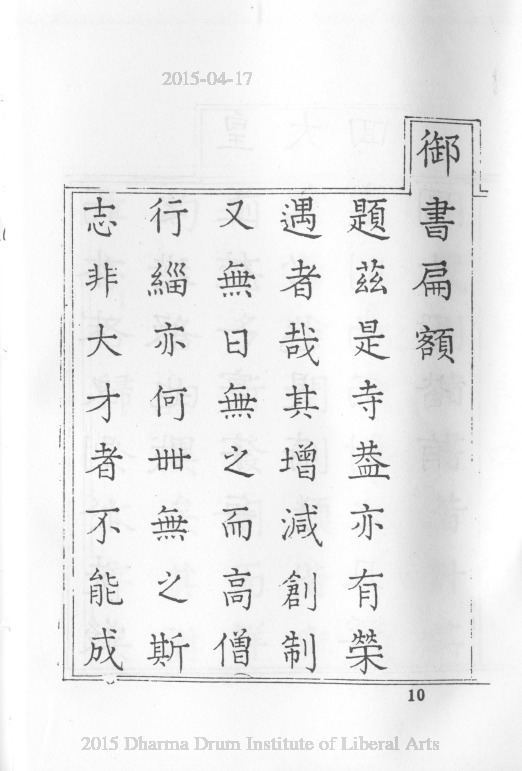 2015-04-17
御書扁額
題茲是寺葢亦有榮
遇者哉其增減創制
又無日無之而高僧
行緇亦何丗無之斯
志非大才者不能成
10
2015 Dharma Drum Institute of Liberal Arts